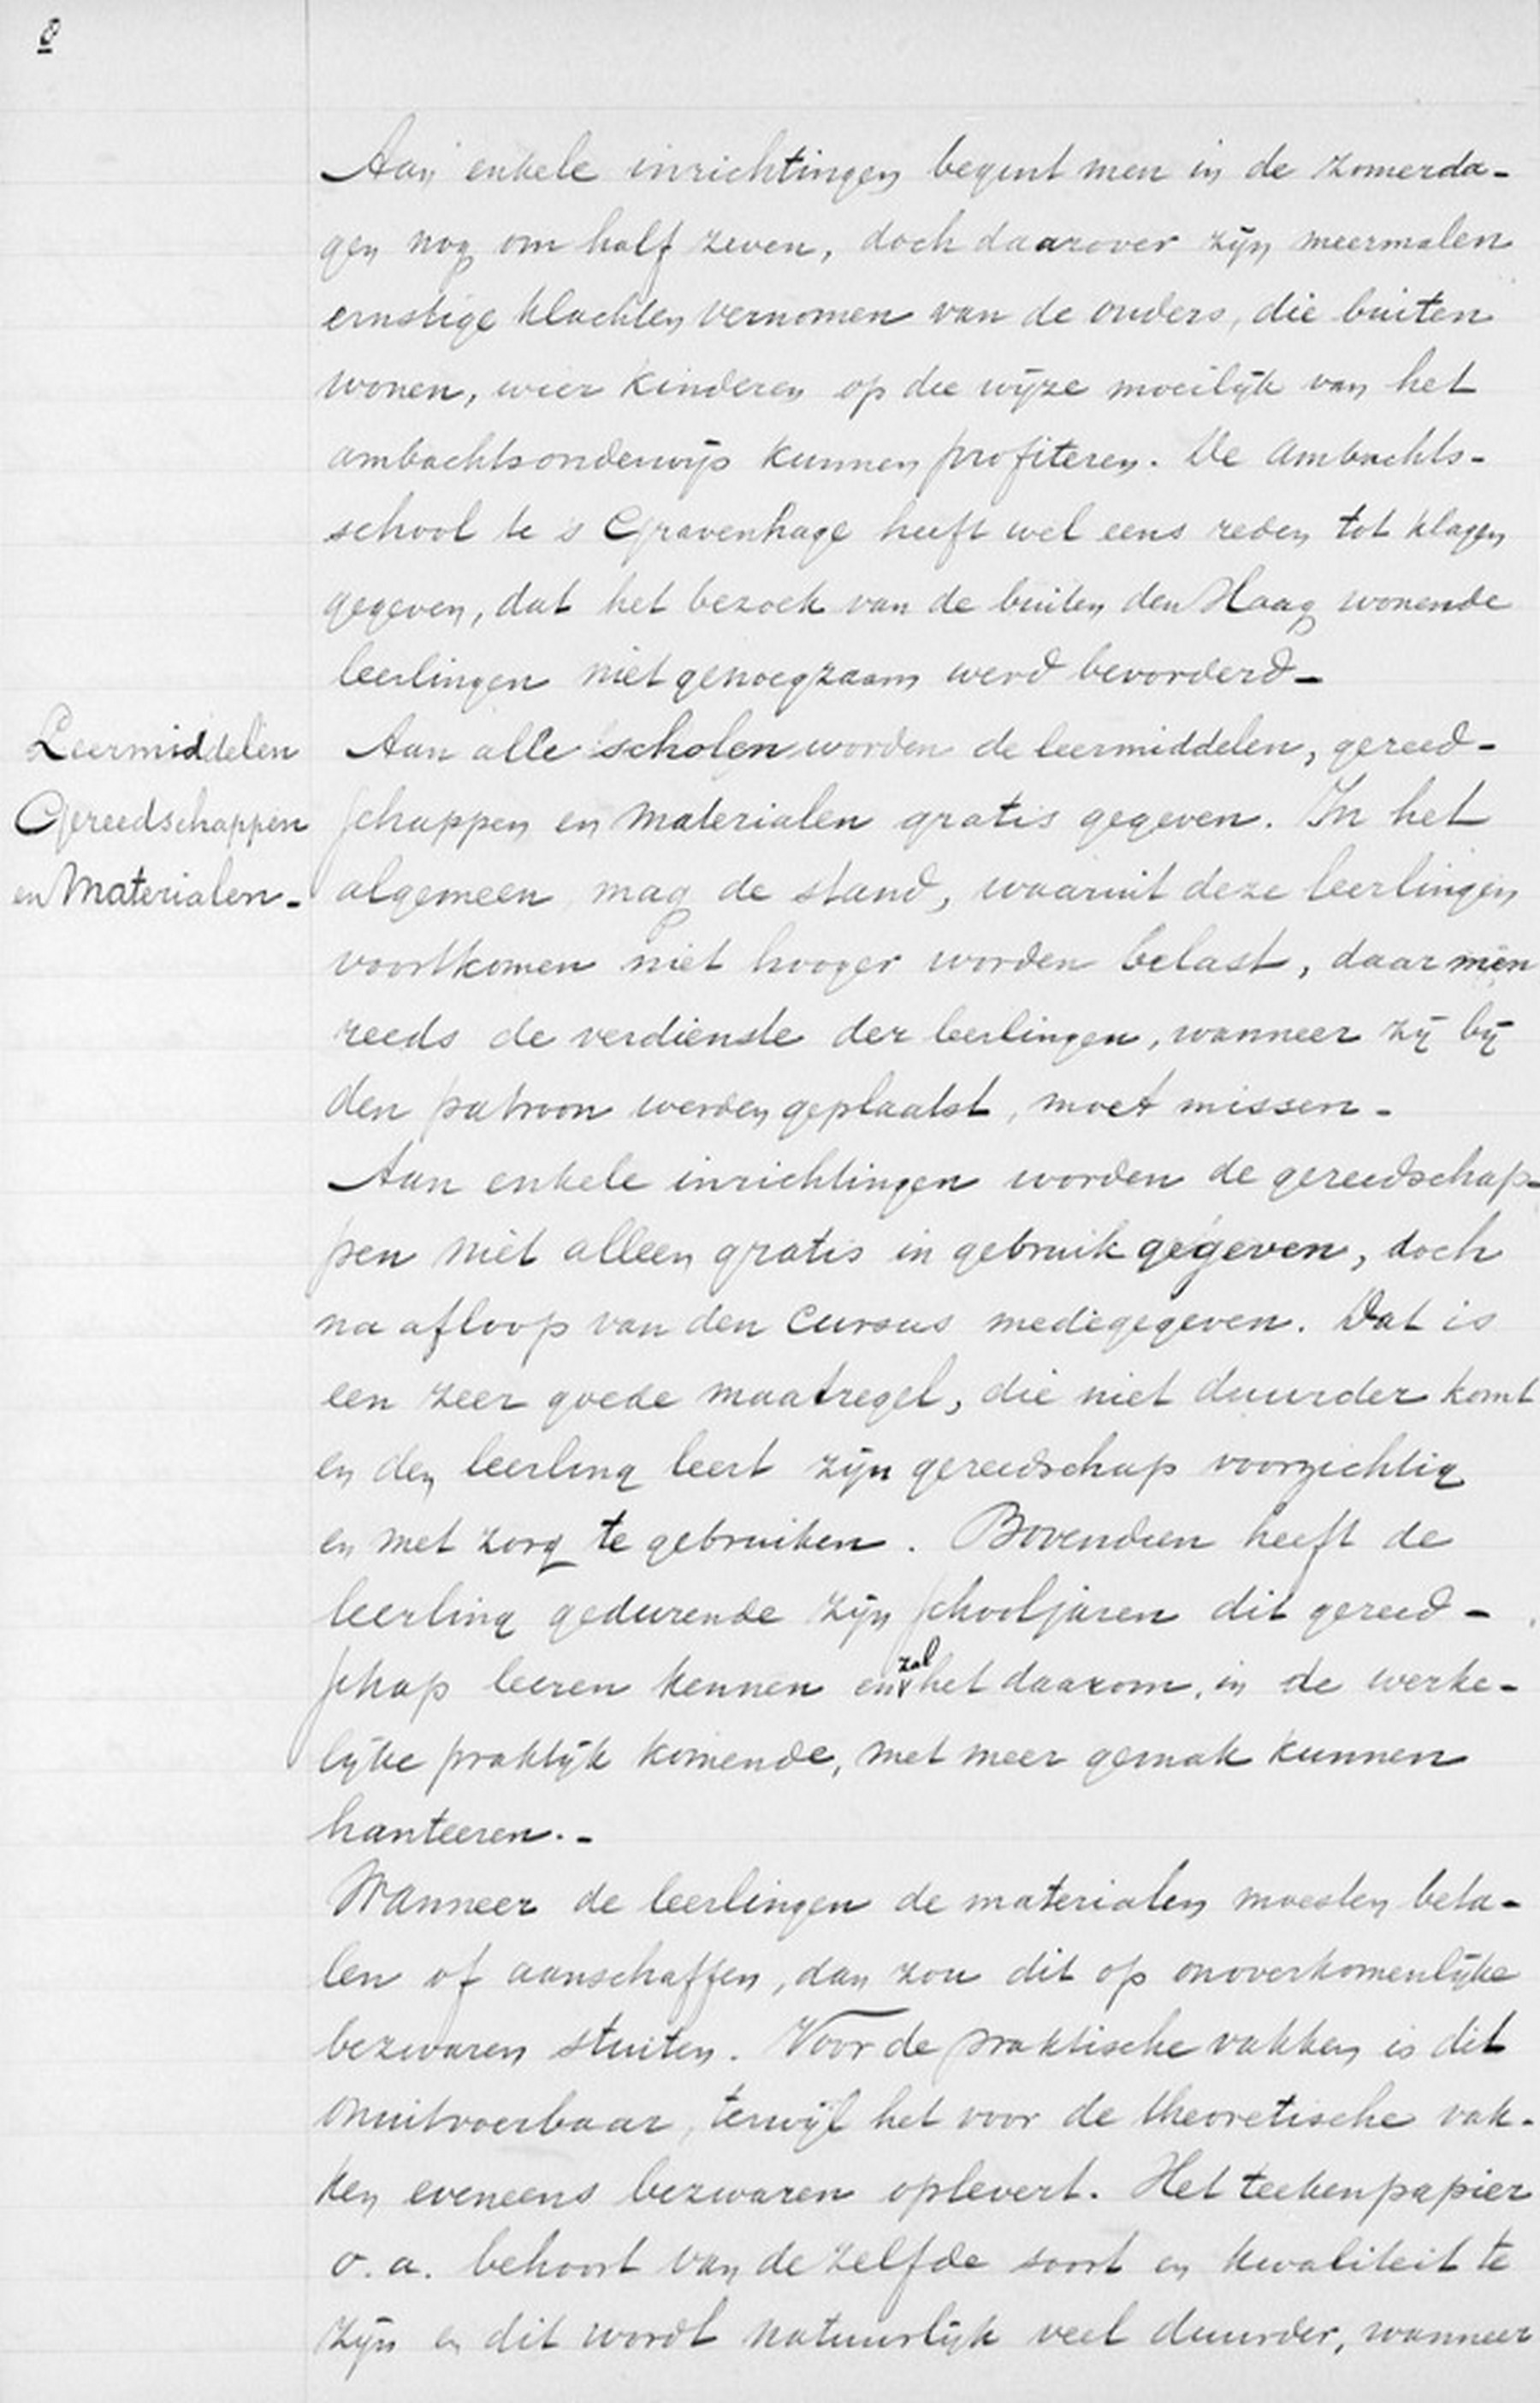 8
Aan enkele inrichtingen begint men in de zomerda-
gen nog om half zeven, doch daarover zijn meermalen
ernstige klachten vernomen van de ouders, die buiten
wonen, wier kinderen op die wijze moeilijk van het
ambachtsonderwijs kunnen profiteren. De ambachts-
school te 's Gravenhage heeft wel eens reden tot klagen
gegeven, dat het bezoek van de buiten den Haag wonende
leerlingen niet genoegzaam werd bevorderd-
Leermiddelen
Gereedschappen
en Materialen-
Aan alle scholen worden de leermiddelen, gereed-
schappen en materialen gratis gegeven. In het
algemeen mag de stand, waaruit deze leerlingen
voortkomen niet hooger worden belast, daar men
reeds de verdienste der leerlingen, wanneer zij bij
den patroon werden geplaatst, moet missen-
Aan enkele inrichtingen worden de gereedschap-
pen niet alleen gratis in gebruik gegeven, doch
na afloop van den cursus medegegeven. Dat is
een zeer goede maatregel, die niet duurder komt
en den leerling leert zijn gereedschap voorzichtig
en met zorg te gebruiken. Bovendien heeft de
leerling gedurende zijn schooljaren dit gereed-
schap leeren kennen en zal het daarom, in de werke-
lijke praktijk komende, met meer gemak kunnen
hanteeren.-
Wanneer de leerlingen de materialen moesten beta-
len of aanschaffen, dan zou dit op onoverkomenlijke
bezwaren stuiten. Voor de praktische vakken is dit
onuitvoerbaar, terwijl het voor de theoretische vak-
ken eveneens bezwaren oplevert. Het teekenpapier
o.a. behoort van de zelfde soort en kwaliteit te
zijn en dit wordt natuurlijk veel duurder, wanneer